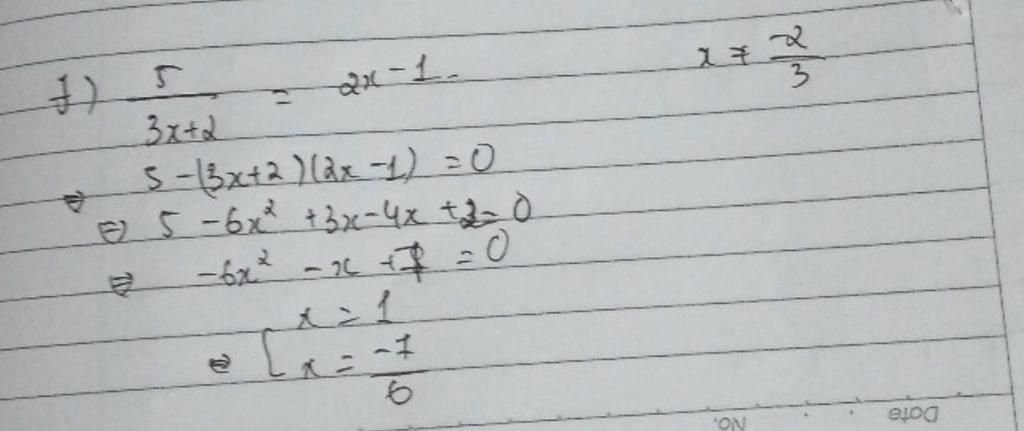 f) 5/(3x+2) = 2x - 1. x ≠ -2/3
⇔ 5 - (3x+2)(2x-1) = 0
⇔ 5 - 6x² + 3x - 4x + 2 = 0
⇔ -6x² - x + 7 = 0
⇔ [ x = 1
x = -7/6
No. Date